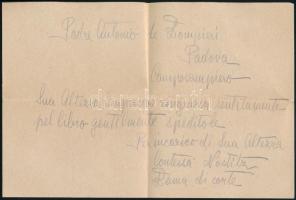 Padre Antonio de Pompieri
Padova
Camposampiero
Sua Altezza ringrazia sentitamente
pel libro gentilmente speditole
Per incarico di Sua Altezza
Contessa Nostitz
Dama di corte